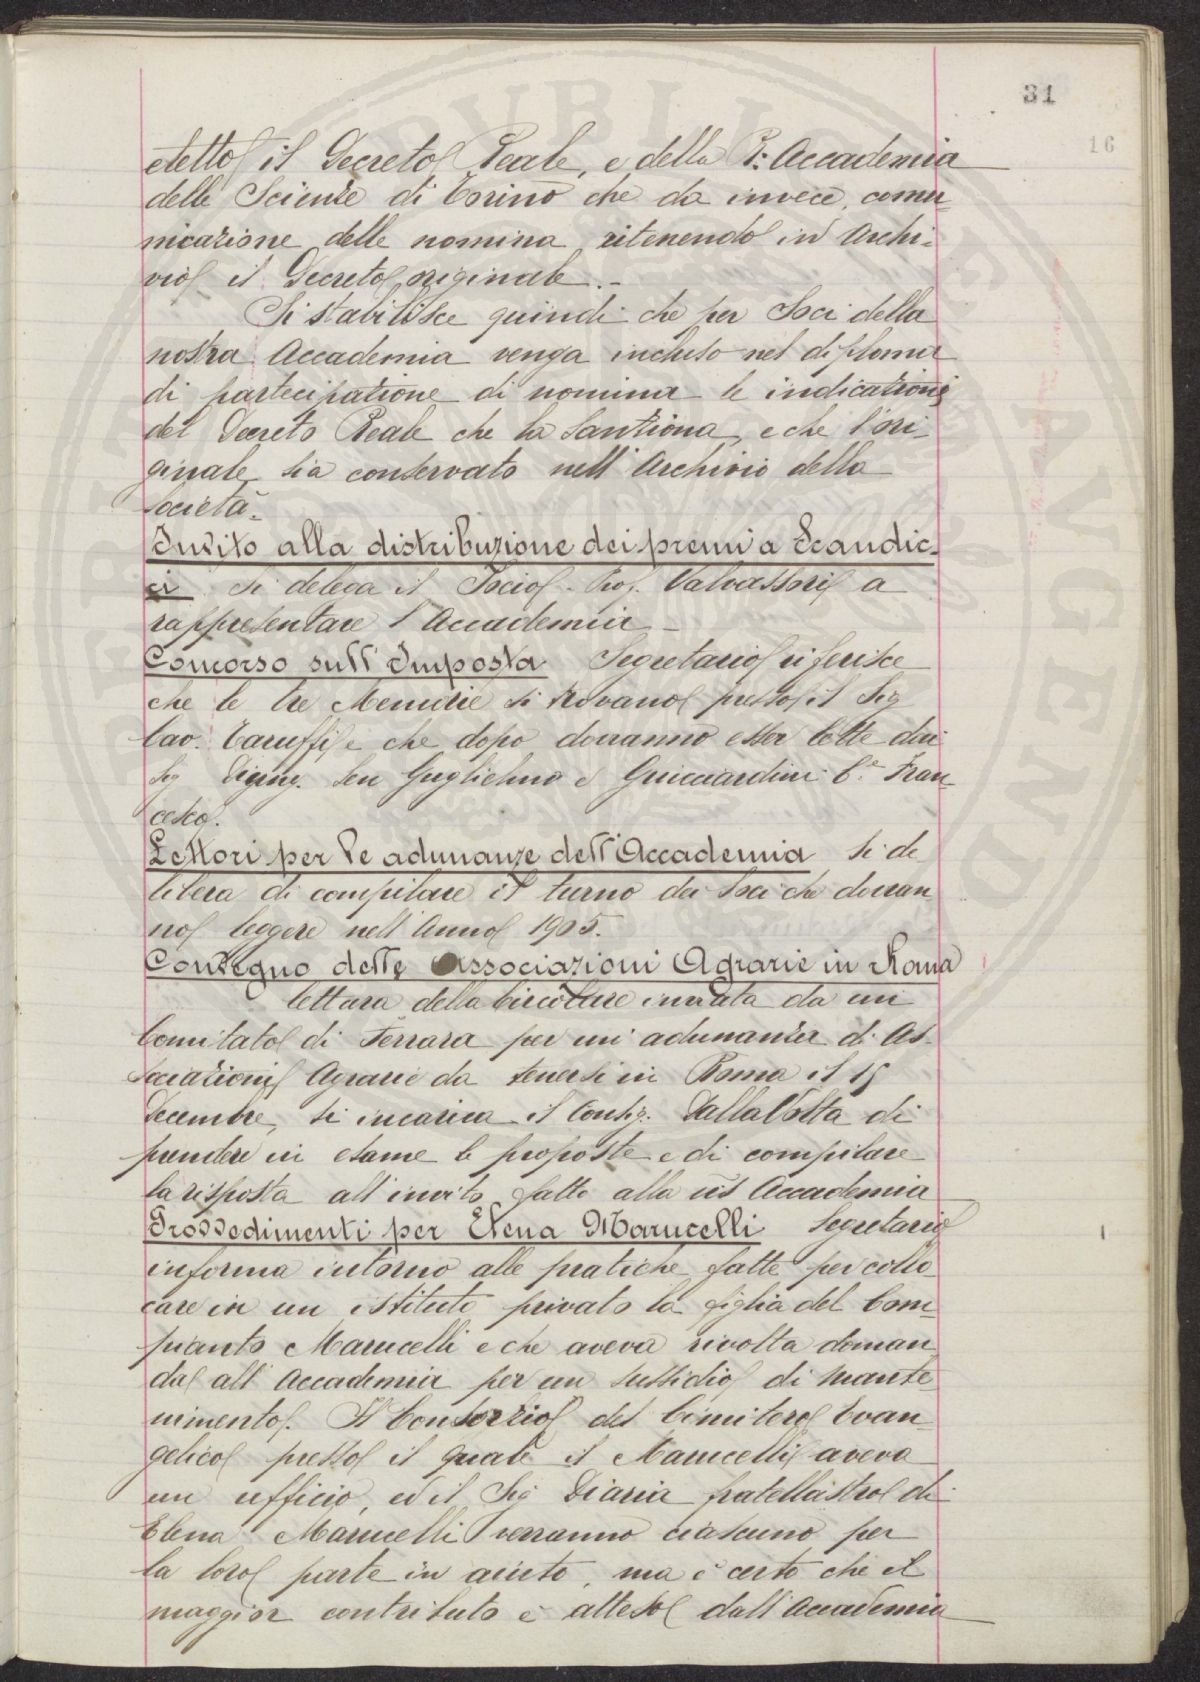 31
16
eletto il Decreto Reale, e della R: Accademia
delle Scienze di Torino che da invece comu-
nicazione delle nomina ritenendo in Archi-
vio il Decreto originale.-
Si stabilisce quindi che per Soci della
nostra Accademia venga incluso nel diploma
di partecipazione di nomina le indicazioni
del Decreto Reale che la sanziona, e che l'ori-
ginale sia conservato nell'Archivio della
Società.
Invito alla distribuzione dei premi a Scandic-
ci Si delega il Socio Prof. Valvassori a
rappresentare l'Accademia -
Concorso sull'Imposta Segretario riferisce
che le tre Memorie si trovano presso il Sig
Cav. Taruffi e che dopo dovranno esser lette dai
Sig Digny. Sen Guglielmo e Guicciardini C.e Fran-
cesco.
Lettori per le adunanze dell'Accademia Si de
libera di compilare il turno dei Soci che dovran
no leggere nell'Anno 1905.
Convegno delle Associazioni Agrarie in Roma
lettura della Circolare inviata da un
Comitato di Ferrara per un adunanza di As-
sociazioni Agrarie da tenersi in Roma il 15
Decembre, si incarica il Consig. Dalla Volta di
prendere in esame le proposte e di compilare
la risposta all'invito fatto alla Accademia
Provvedimenti per Elena Marucelli Segretario
informa intorno alle pratiche fatte per collo-
care in un istituto privato la figlia del Com-
pianto Marucelli e che aveva rivolta doman
da all'Accademia per un sussidio di mante-
nimento. Il Consorzio del Cimitero Evan-
gelico presso il quale il Marucelli aveva
un ufficio, ed il Sig Diaria fratellastro di
Elena Marucelli verranno ciascuno per
la loro parte in aiuto, ma è certo che il
maggior contributo è atteso dall'Accademia